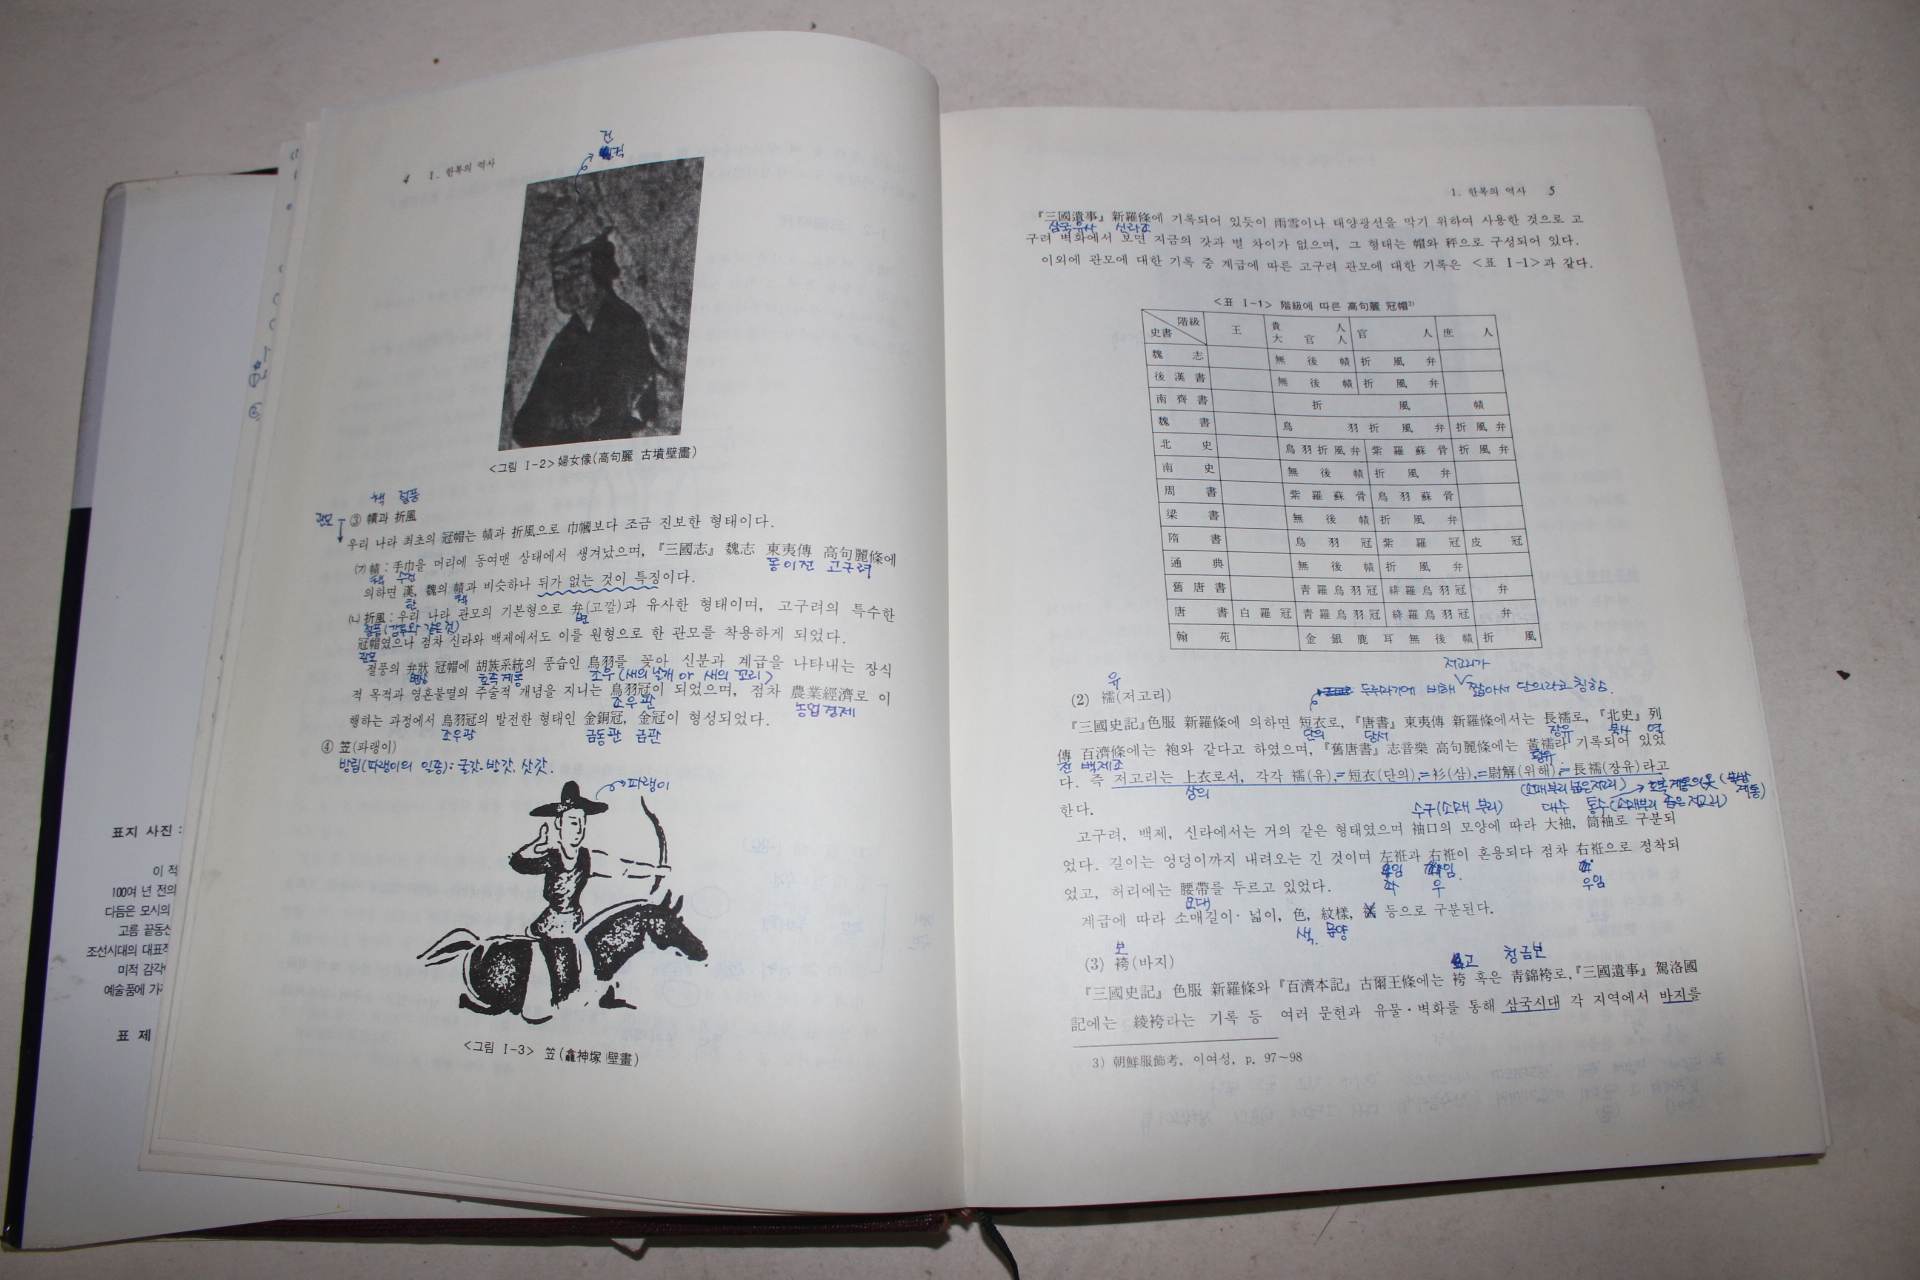 4 Ⅰ. 한복의 역사
건
책
<그림 Ⅰ-2> 婦女像(高句麗 古墳壁畵)
책 절풍
관모
③ 幘과 折風
우리 나라 최초의 冠帽는 幘과 折風으로 巾幗보다 조금 진보한 형태이다.
㈎ 幘 : 手巾을 머리에 동여맨 상태에서 생겨났으며, 『三國志』 魏志 東夷傳 高句麗條에
책 수건 동이전 고구려
의하면 漢, 魏의 幘과 비슷하나 뒤가 없는 것이 특징이다.
한 책
㈏ 折風 : 우리 나라 관모의 기본형으로 弁(고깔)과 유사한 형태이며, 고구려의 특수한
절풍(감투와 같은것) 변
冠帽였으나 점차 신라와 백제에서도 이를 원형으로 한 관모를 착용하게 되었다.
관모
절풍의 弁狀 冠帽에 胡族系統의 풍습인 鳥羽를 꽂아 신분과 계급을 나타내는 장식
변상 호족계통 조우(새의 날개 or 새의 꼬리)
적 목적과 영혼불멸의 주술적 개념을 지니는 鳥羽冠이 되었으며, 점차 農業經濟로 이
조우관 농업경제
행하는 과정에서 鳥羽冠의 발전한 형태인 金銅冠, 金冠이 형성되었다.
조우관 금동관 금관
④ 笠(파랭이)
방립(파랭이의 일종) : 굴갓·방갓, 삿갓.
파랭이
<그림 Ⅰ-3> 笠(龕神塚 壁畫)
표지 사진 :
이 적
100여 년 전의
다듬은 모시의
고름 끝동선
조선시대의 대표적
미적 감각
예술품에 가
표 제
1. 한복의 역사 5
『三國遺事』 新羅條에 기록되어 있듯이 雨雪이나 태양광선을 막기 위하여 사용한 것으로 고
삼국유사 신라조
구려 벽화에서 보면 지금의 갓과 별 차이가 없으며, 그 형태는 帽와 秤으로 구성되어 있다.
이외에 관모에 대한 기록 중 계급에 따른 고구려 관모에 대한 기록은 <표 Ⅰ-1>과 같다.
<표 Ⅰ-1> 階級에 따른 高句麗 冠帽3)
史書 階級 王 貴人 大官人 官人 庶人
魏志 無後幘 折風弁
後漢書 無後幘 折風弁
南齊書 折風 幘
魏書 鳥羽折風弁 折風弁
北史 鳥羽折風弁 紫羅蘇骨 折風弁
南史 無後幘 折風弁
周書 紫羅蘇骨 鳥羽蘇骨
梁書 無後幘 折風弁
隋書 鳥羽冠 紫羅冠 皮冠
通典 無後幘 折風弁
舊唐書 靑羅鳥羽冠 緋羅鳥羽冠 弁
唐書 白羅冠 靑羅鳥羽冠 絳羅鳥羽冠 弁
翰苑 金銀鹿耳無後幘 折風
저고리가
유
두루마기에 비해 짧아서 단의라고 칭함.
(2) 襦(저고리)
『三國史記』 色服 新羅條에 의하면 短衣로, 『唐書』 東夷傳 新羅條에서는 長襦로, 『北史』 列
단의 당서 장유 북사 열
傳 百濟條에는 袍와 같다고 하였으며, 『舊唐書』 志音樂 高句麗條에는 黃襦라 기록되어 있었
전 백제조 황유
다. 즉 저고리는 上衣로서, 각각 襦(유)=短衣(단의)=衫(삼)=尉解(위해)=長襦(장유)라고
상의 (소매부리 넓은저고리) 호복계통의옷(북방계통)
한다.
수구(소매 부리) 대수 통수(소매부리 좁은 저고리)
고구려, 백제, 신라에서는 거의 같은 형태였으며 袖口의 모양에 따라 大袖, 筒袖로 구분되
었다. 길이는 엉덩이까지 내려오는 긴 것이며 左衽과 右衽이 혼용되다 점차 右衽으로 정착되
좌 우 우임
었고, 허리에는 腰帶를 두르고 있었다.
요대
계급에 따라 소매길이·넓이, 色, 紋樣, 등으로 구분된다.
색, 문양
(3) 袴(바지)
고 청금고
『三國史記』 色服 新羅條와 『百濟本記』 古爾王條에는 袴 혹은 靑錦袴로, 『三國遺事』 駕洛國
記에는 綾袴라는 기록 등 여러 문헌과 유물·벽화를 통해 삼국시대 각 지역에서 바지를
3) 朝鮮服飾考, 이여성, p. 97~98